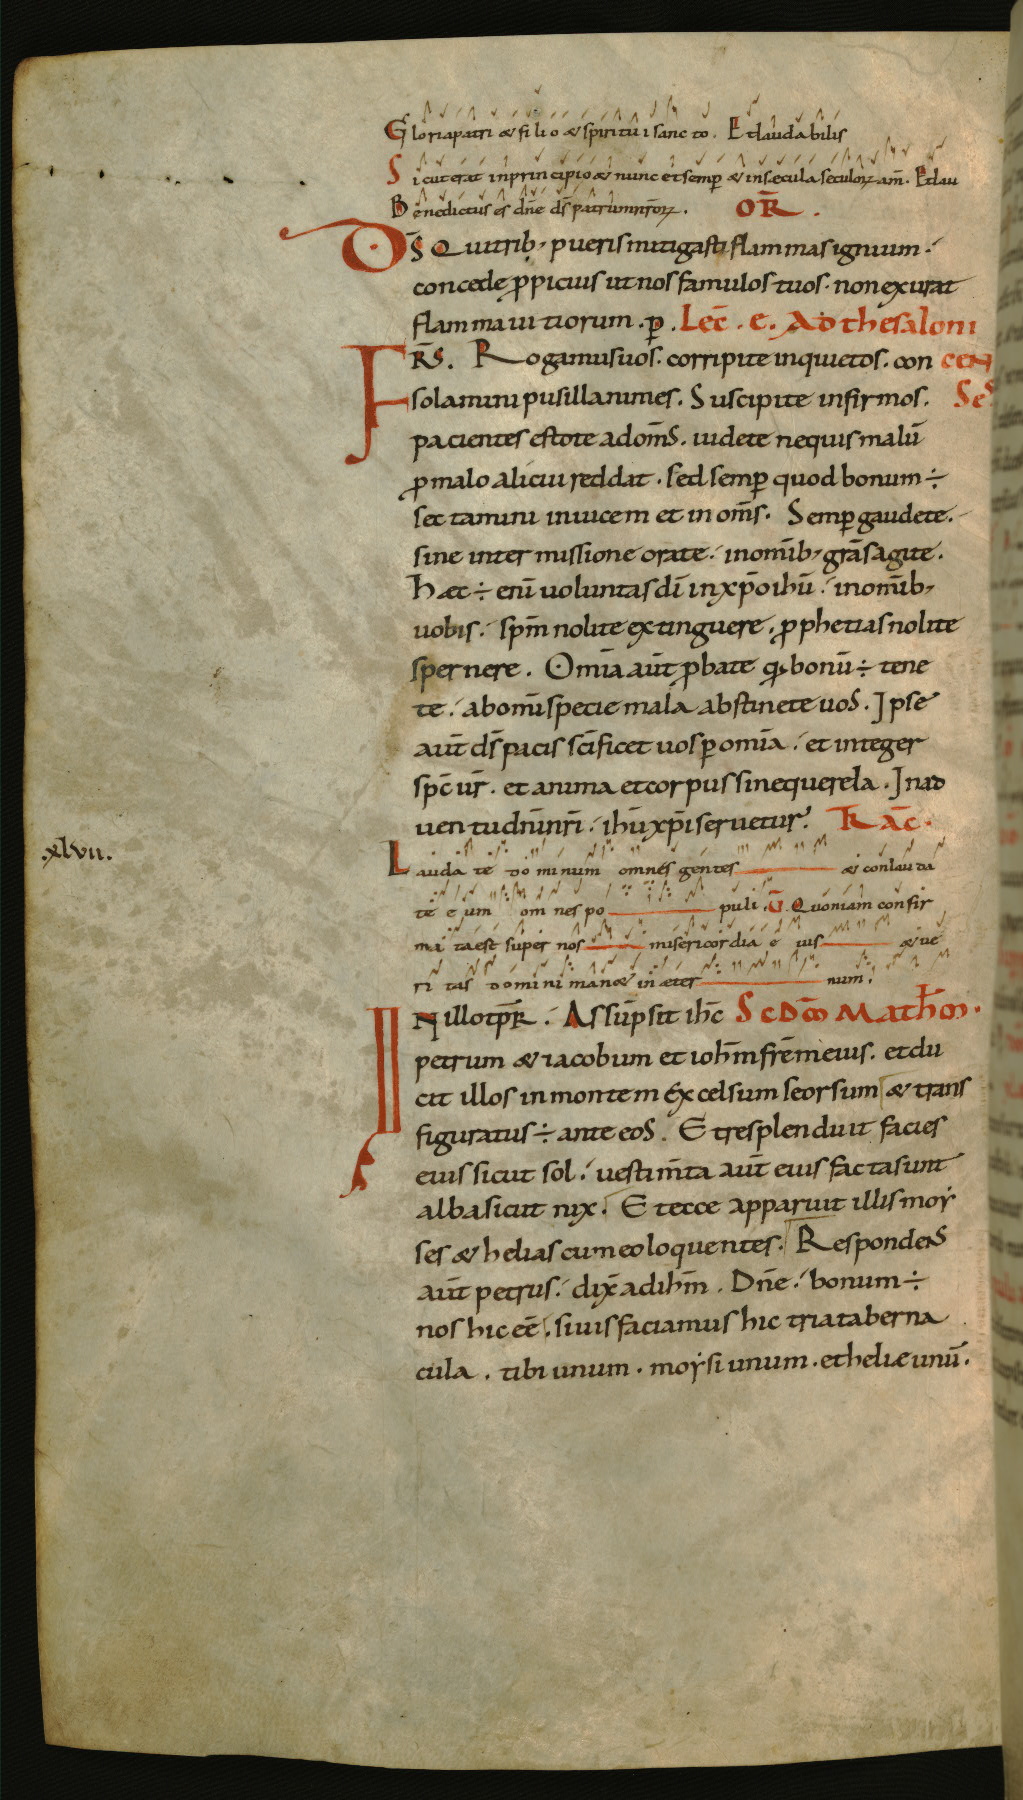 Gloria patri & filio & spiritui sancto. Et laudabilis
Sicut erat in principio & nunc et semp̄ & in sæcula seculoꝝ am̄. Et lau
Benedictus es dn̄e ds̄ patrum nr̄oꝝ. OR̄.
D̄S Qui trib; pueris mitigasti flammas ignium.
concede ꝓpicius ut nos famulos tuos. non exurat
flamma uitiorum. p̄. Lec̄. e. Ad thesaloni
FR̄S. Rogamus uos. corripite inquietos. con cen
solamini pusillanimes. Suscipite infirmos. Ses
pacientes estote ad om̄s. uidete nequis malū
ꝓ malo alicui reddat. sed semp̄ quod bonum ÷
sectamini inuicem et in om̄s. Semp̄ gaudete.
sine intermissione orate. in om̄ib; grās agite.
Hæc ÷ enī uoluntas dī in xp̄o ihū. in om̄ib;
uobis. sp̄m nolite extinguere. ꝓphetias nolite
spernere. Omīa aūt ꝓbate qd bonū ÷ tene
te. ab om̄i specie mala abstinete uos. Ipse
aūt ds̄ pacis sc̄ificet uos p̄ omīa. et integer
sp̄c ur̄. et anima et corpus sine querela. In ad
uentu dn̄i nr̄i. ihū xp̄i seruetur. TRAC̄.
.xlvii.
Laudate dominum omnes gentes & conlauda
te eum omnes populi. V̄. Quoniam confir
mata est super nos misericordia eius & ue
ritas domini man& in æternum.
IN illo tp̄R. Assūpsit ihc̄ Scdm̄ Math̄m.
petrum & iacobum et ioh̄m fr̄em eius. et du
cit illos in montem excelsum seorsum & trans
figuratus ÷ ante eos. Et resplenduit facies
eius sicut sol. uestim̄ta aūt eius facta sunt
alba sicut nix. Et ecce apparuit illis moy
ses & helias cum eo loquentes. Respondens
aūt petrus. dix̄ ad ih̄m. Dn̄e. bonum ÷
nos hic eē. si uis faciamus hic tria taberna
cula. tibi unum. moysi unum. et heliæ unū.